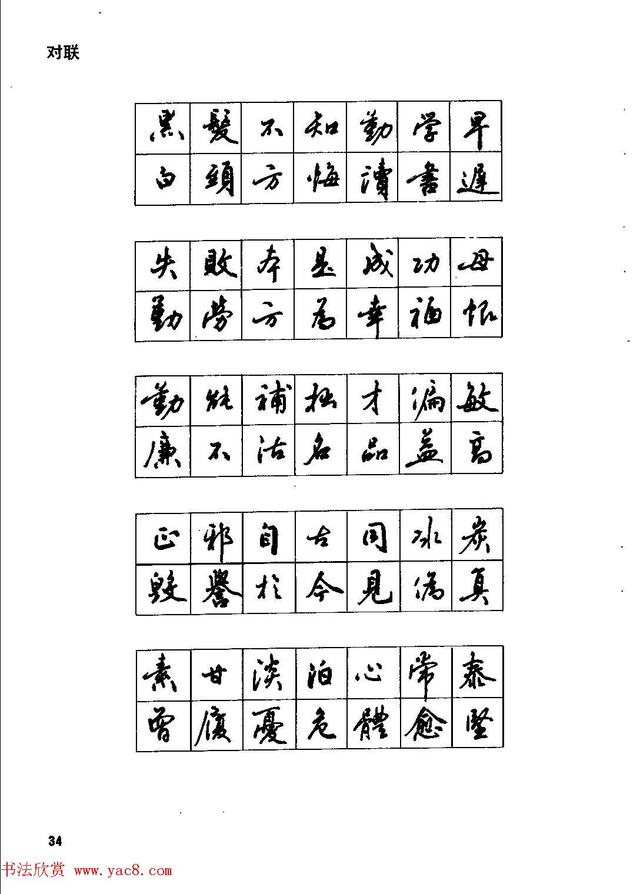 对联
黑髮不知勤学早
白頭方悔讀書遲
失敗本是成功母
勤勞方为幸福根
勤能補拙才偏敏
廉不沽名品益高
正邪自古同冰炭
毀譽於今見偽真
素甘淡泊心常泰
曾履憂危體愈堅
34
书法欣赏 www.yac8.com